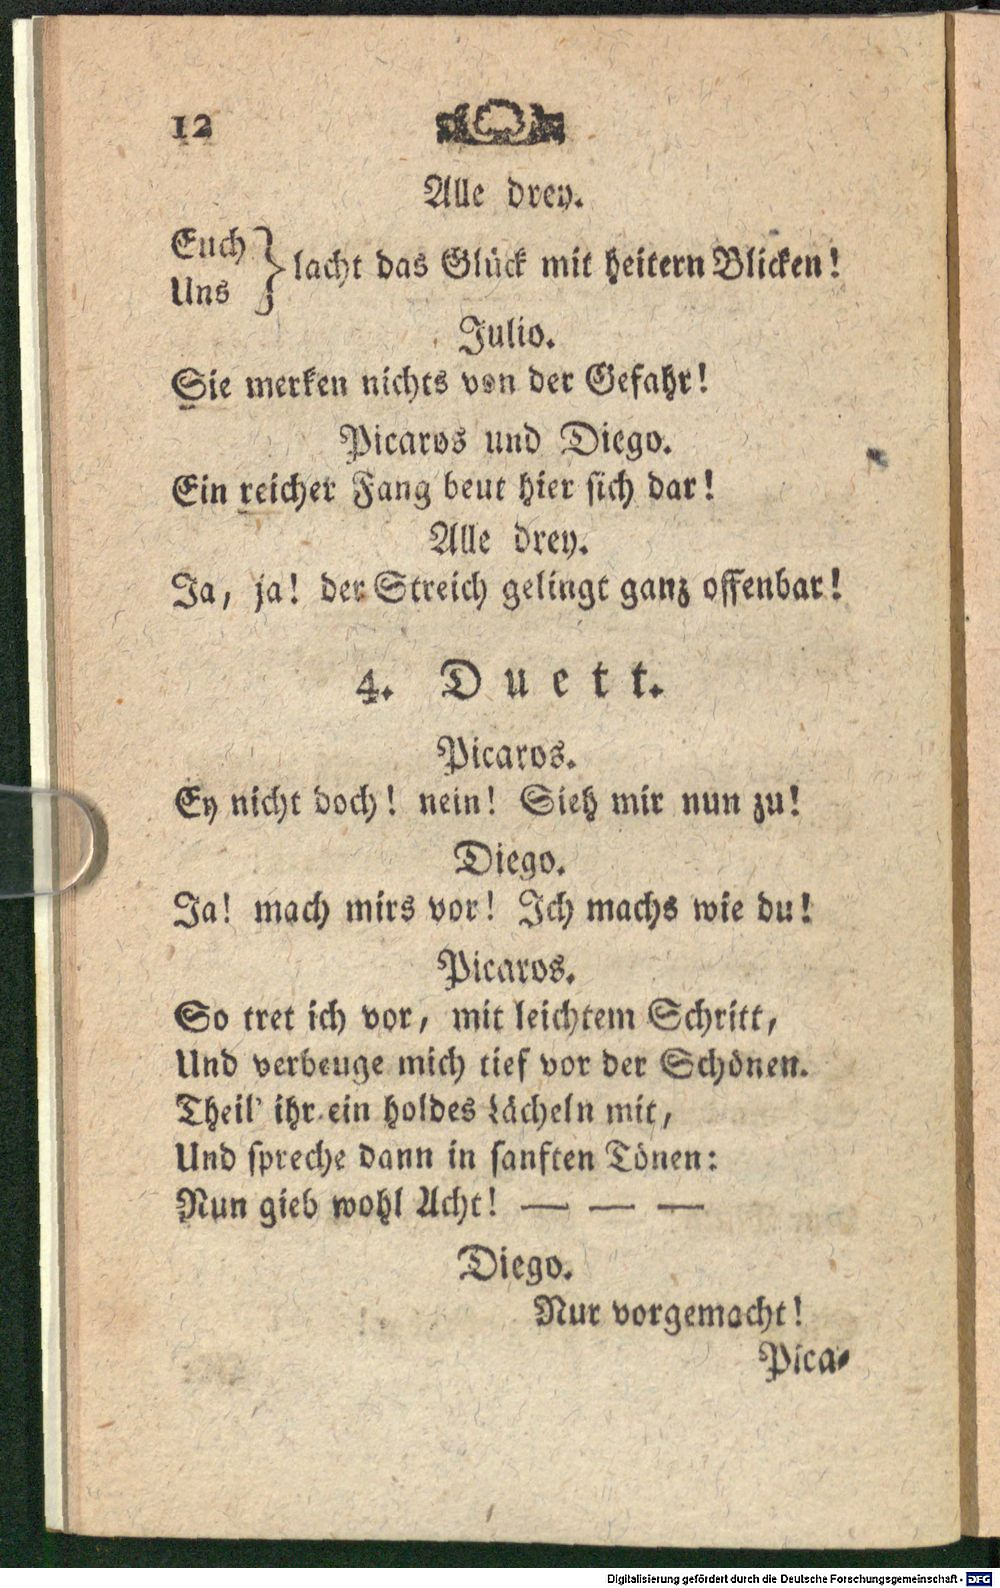 12
Alle drey.
Euch
Uns } lacht das Glück mit heitern Blicken!
Julio.
Sie merken nichts von der Gefahr!
Picaros und Diego.
Ein reicher Fang beut hier sich dar!
Alle drey.
Ja, ja! der Streich gelingt ganz offenbar!
4. Duett.
Picaros.
Ey nicht doch! nein! Sieh mir nun zu!
Diego.
Ja! mach mirs vor! Ich machs wie du!
Picaros.
So tret ich vor, mit leichtem Schritt,
Und verbeuge mich tief vor der Schönen.
Theil' ihr ein holdes Lächeln mit,
Und spreche dann in sanften Tönen:
Nun gieb wohl Acht! — — —
Diego.
Nur vorgemacht!
Pica-
Digitalisierung gefördert durch die Deutsche Forschungsgemeinschaft - DFG